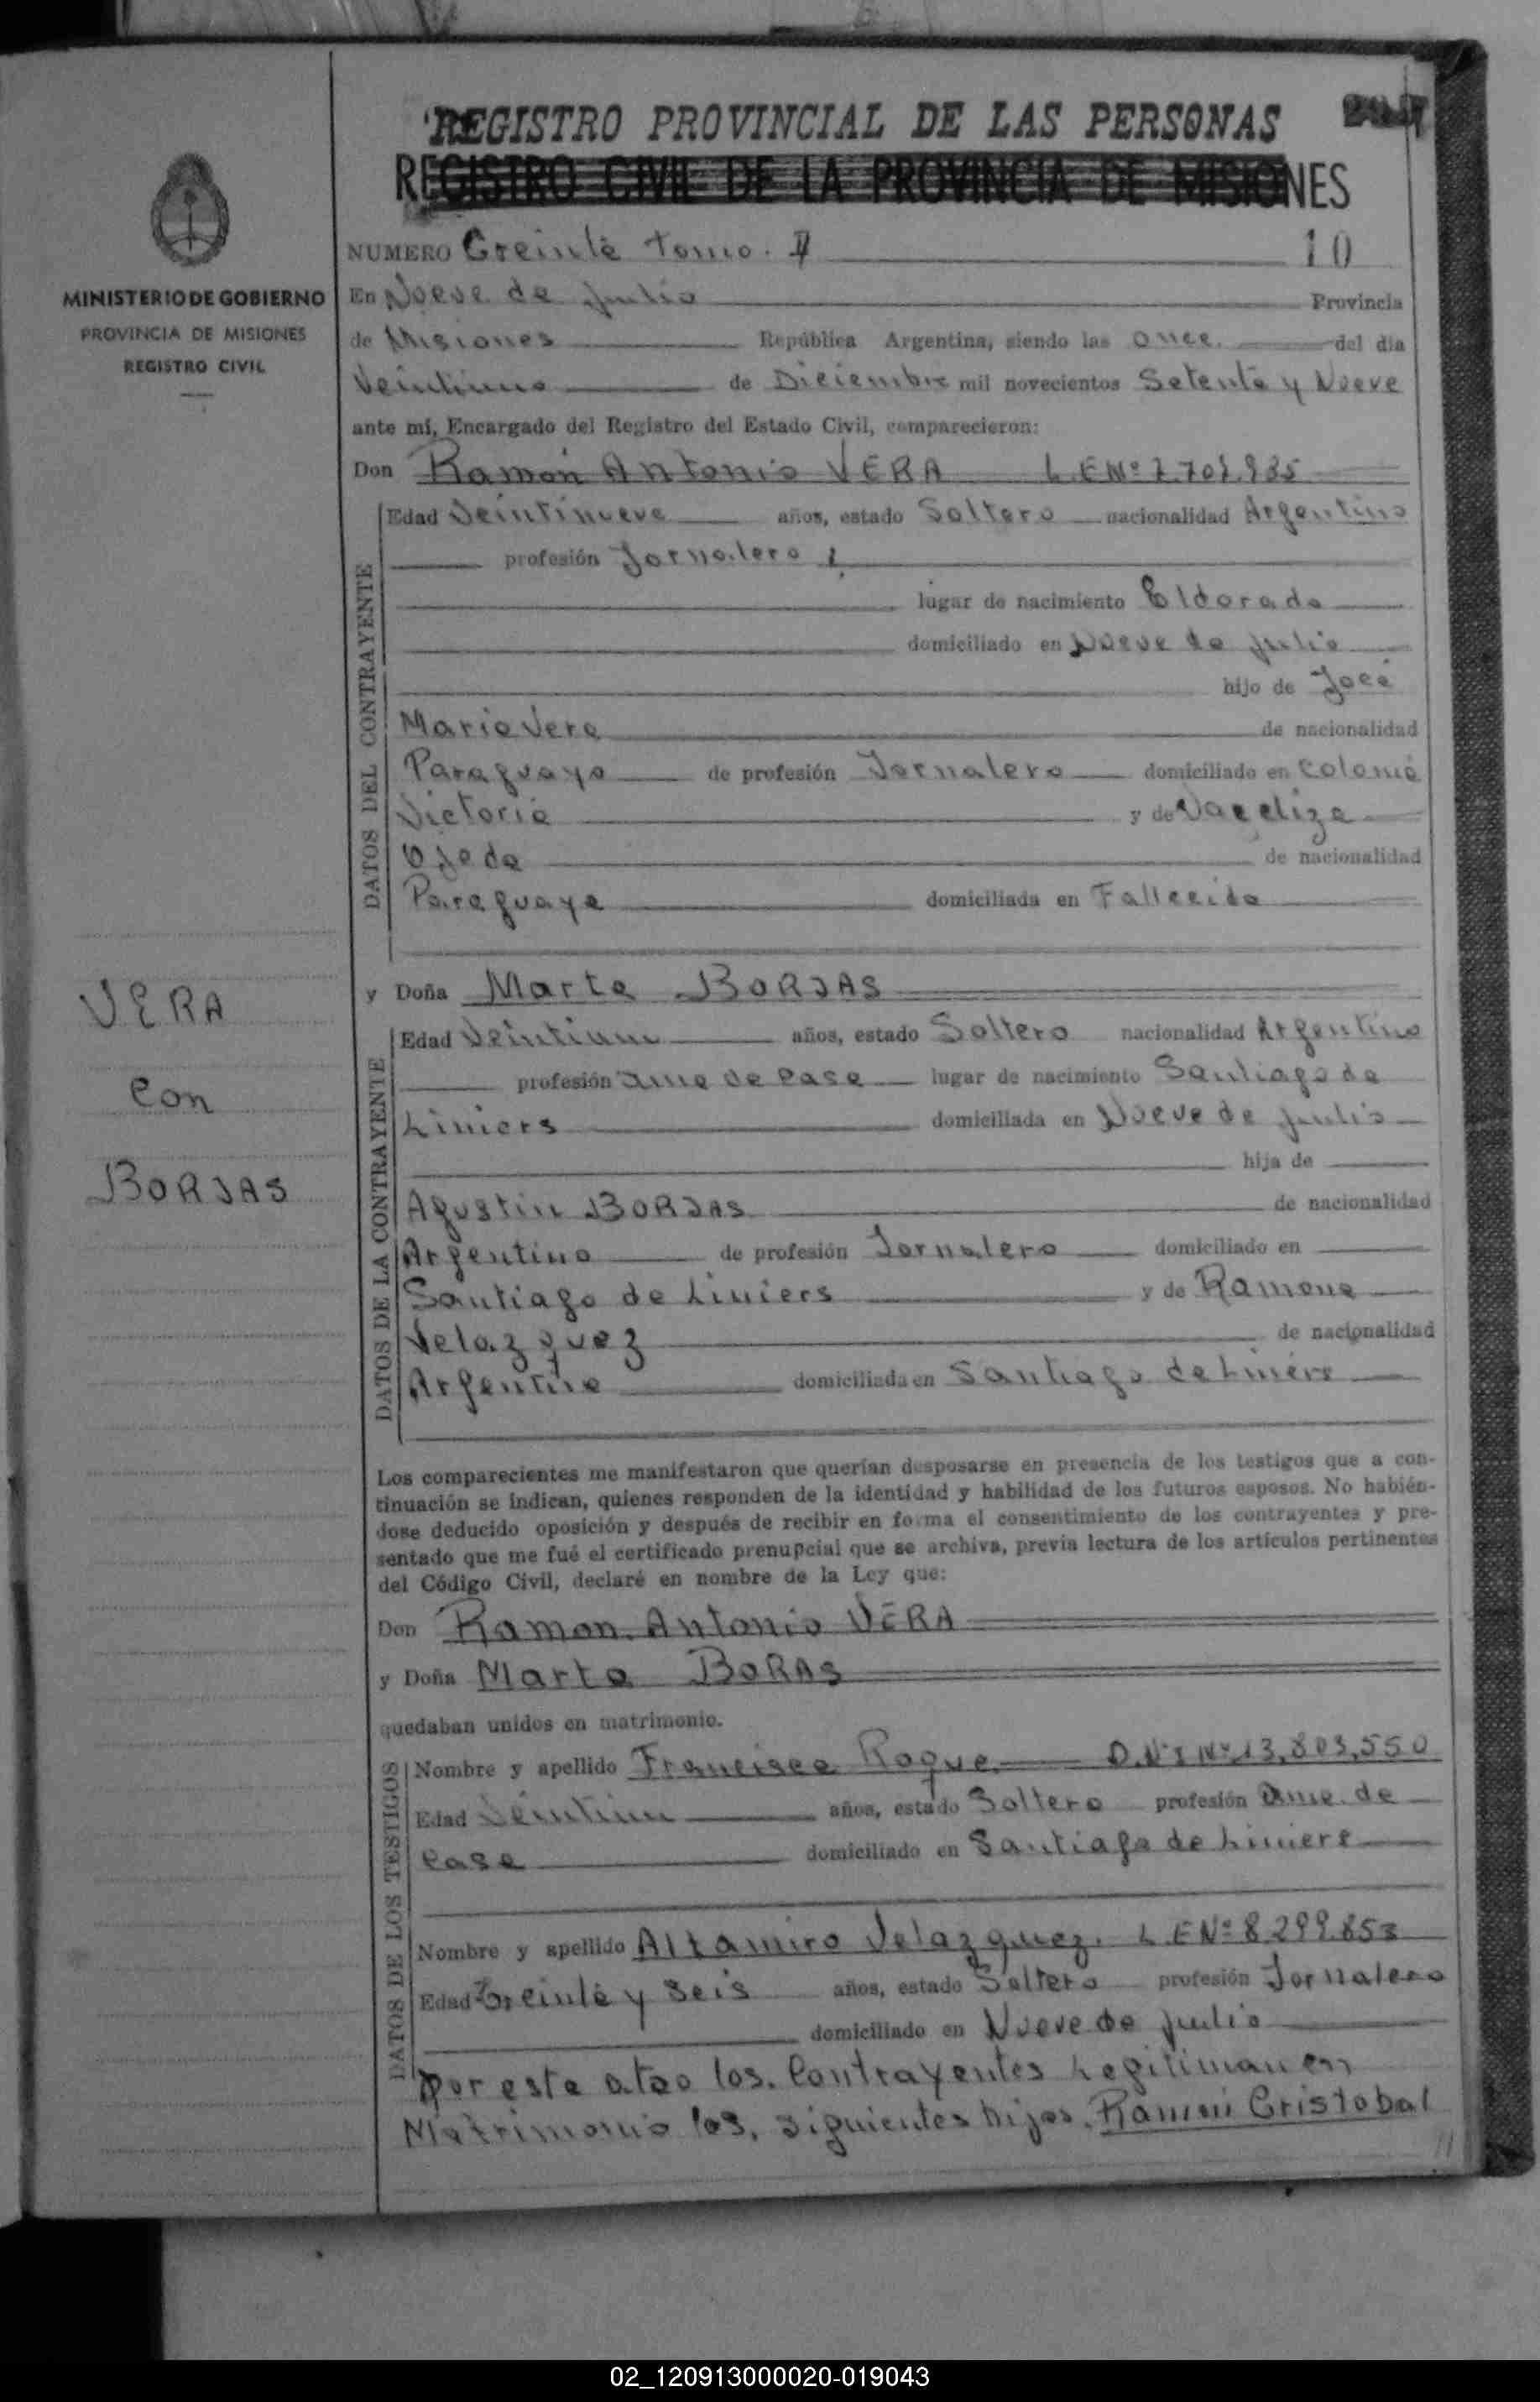 REGISTRO PROVINCIAL DE LAS PERSONAS
REGISTRO CIVIL DE LA PROVINCIA DE MISIONES
MINISTERIO DE GOBIERNO
PROVINCIA DE MISIONES
REGISTRO CIVIL
VERA
con
BORJAS
NUMERO Treinta Tomo. II 10
En Nueve de Julio Provincia
de Misiones República Argentina, siendo las once. del día
Veintiuno de Diciembre mil novecientos Setenta y Nueve
ante mí, Encargado del Registro del Estado Civil, comparecieron:
Don Ramón Antonio VERA L.E Nº
DATOS DEL CONTRAYENTE
Edad Veintinueve años, estado Soltero nacionalidad Argentino
profesión Jornalero
lugar de nacimiento Eldorado
domiciliado en Nueve de Julio
hijo de José
Maria Vera de nacionalidad
Paraguayo de profesión Jornalero domiciliado en Colonia
Victoria y de
Ojeda de nacionalidad
Paraguaya domiciliada en Fallecida
y Doña Marta BORJAS
DATOS DE LA CONTRAYENTE
Edad Veintiun años, estado Soltero nacionalidad Argentino
profesión ama de casa lugar de nacimiento Santiago de
Liniers domiciliada en Nueve de Julio
hija de
Agustin BORJAS de nacionalidad
Argentino de profesión Jornalero domiciliado en
Santiago de Liniers y de Ramona
Velazquez de nacionalidad
Argentina domiciliada en Santiago de Liniers
Los comparecientes me manifestaron que querían desposarse en presencia de los testigos que a con-
tinuación se indican, quienes responden de la identidad y habilidad de los futuros esposos. No habién-
dose deducido oposición y después de recibir en forma el consentimiento de los contrayentes y pre-
sentado que me fué el certificado prenupcial que se archiva, previa lectura de los artículos pertinentes
del Código Civil, declaré en nombre de la Ley que:
Don Ramon Antonio VERA
y Doña Marta BORAS
quedaban unidos en matrimonio.
DATOS DE LOS TESTIGOS
Nombre y apellido Francisca Roque D.N.I Nº 13,803,550
Edad Veintiun años, estado Soltero profesión Ama de
Casa domiciliado en Santiago de Liniers
Nombre y apellido Altamiro Velazquez. L.E Nº 8.299.853
Edad Treinta y Seis años, estado Soltero profesión Jornalero
domiciliado en Nueve de Julio
Por este los. Contrayentes Legitiman en
Matrimonio los, siguientes hijos. Ramón Cristobal
02_120913000020-019043